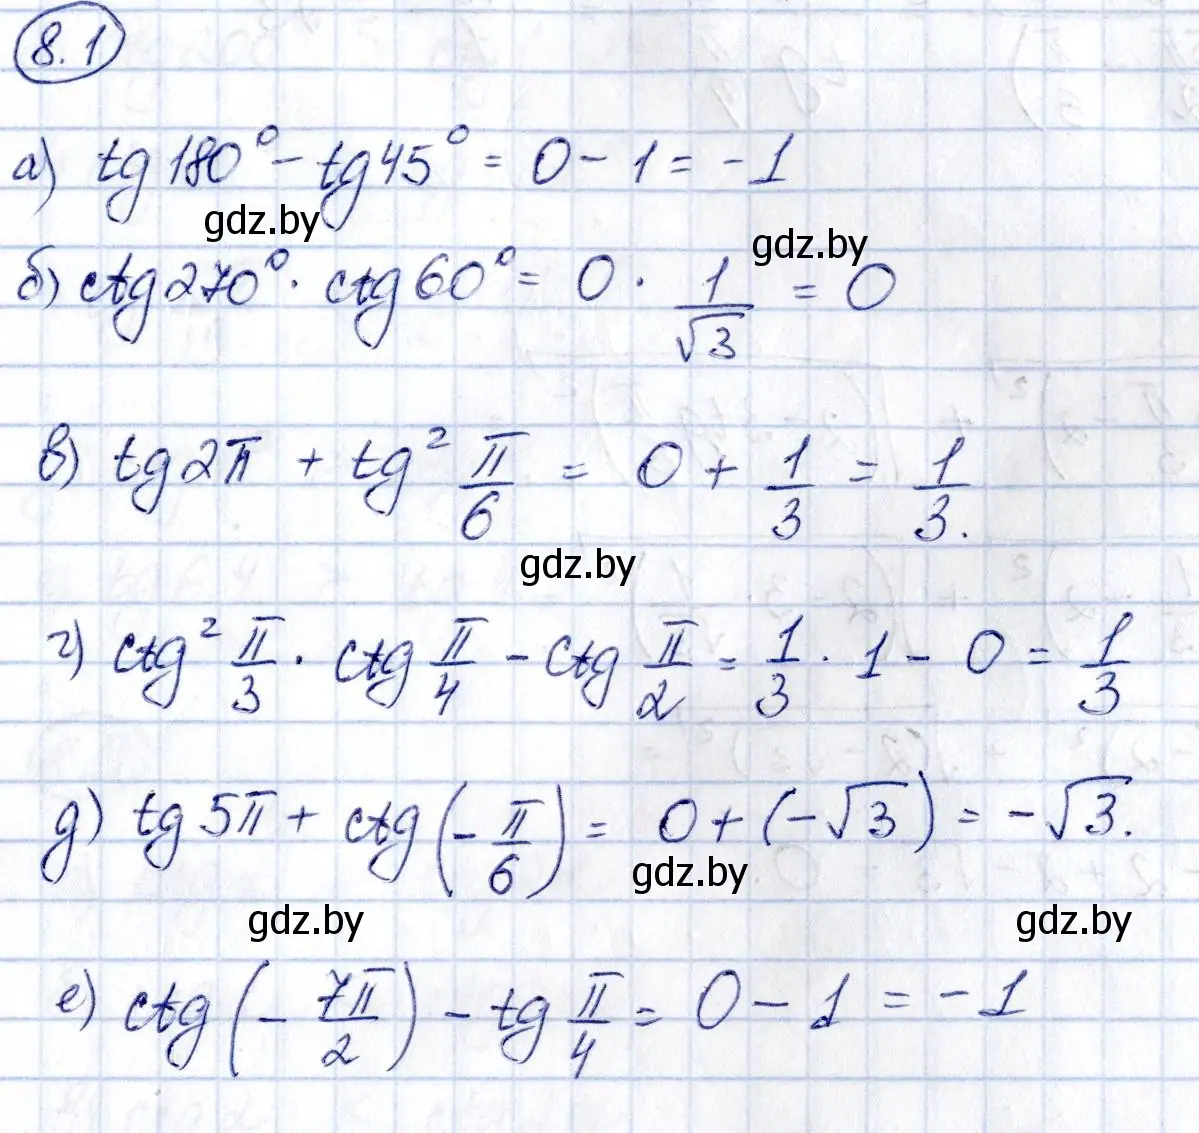 8.1
а) tg 180° - tg 45° = 0 - 1 = -1
gdz.by
gdz.by
б) ctg 270° · ctg 60° = 0 · 1/√3 = 0
в) tg 2π + tg² π/6 = 0 + 1/3 = 1/3.
gdz.by
г) ctg² π/3 · ctg π/4 - ctg π/2 = 1/3 · 1 - 0 = 1/3
д) tg 5π + ctg (-π/6) = 0 + (-√3) = -√3.
gdz.by
gdz.by
gdz.by
е) ctg (-7π/2) - tg π/4 = 0 - 1 = -1